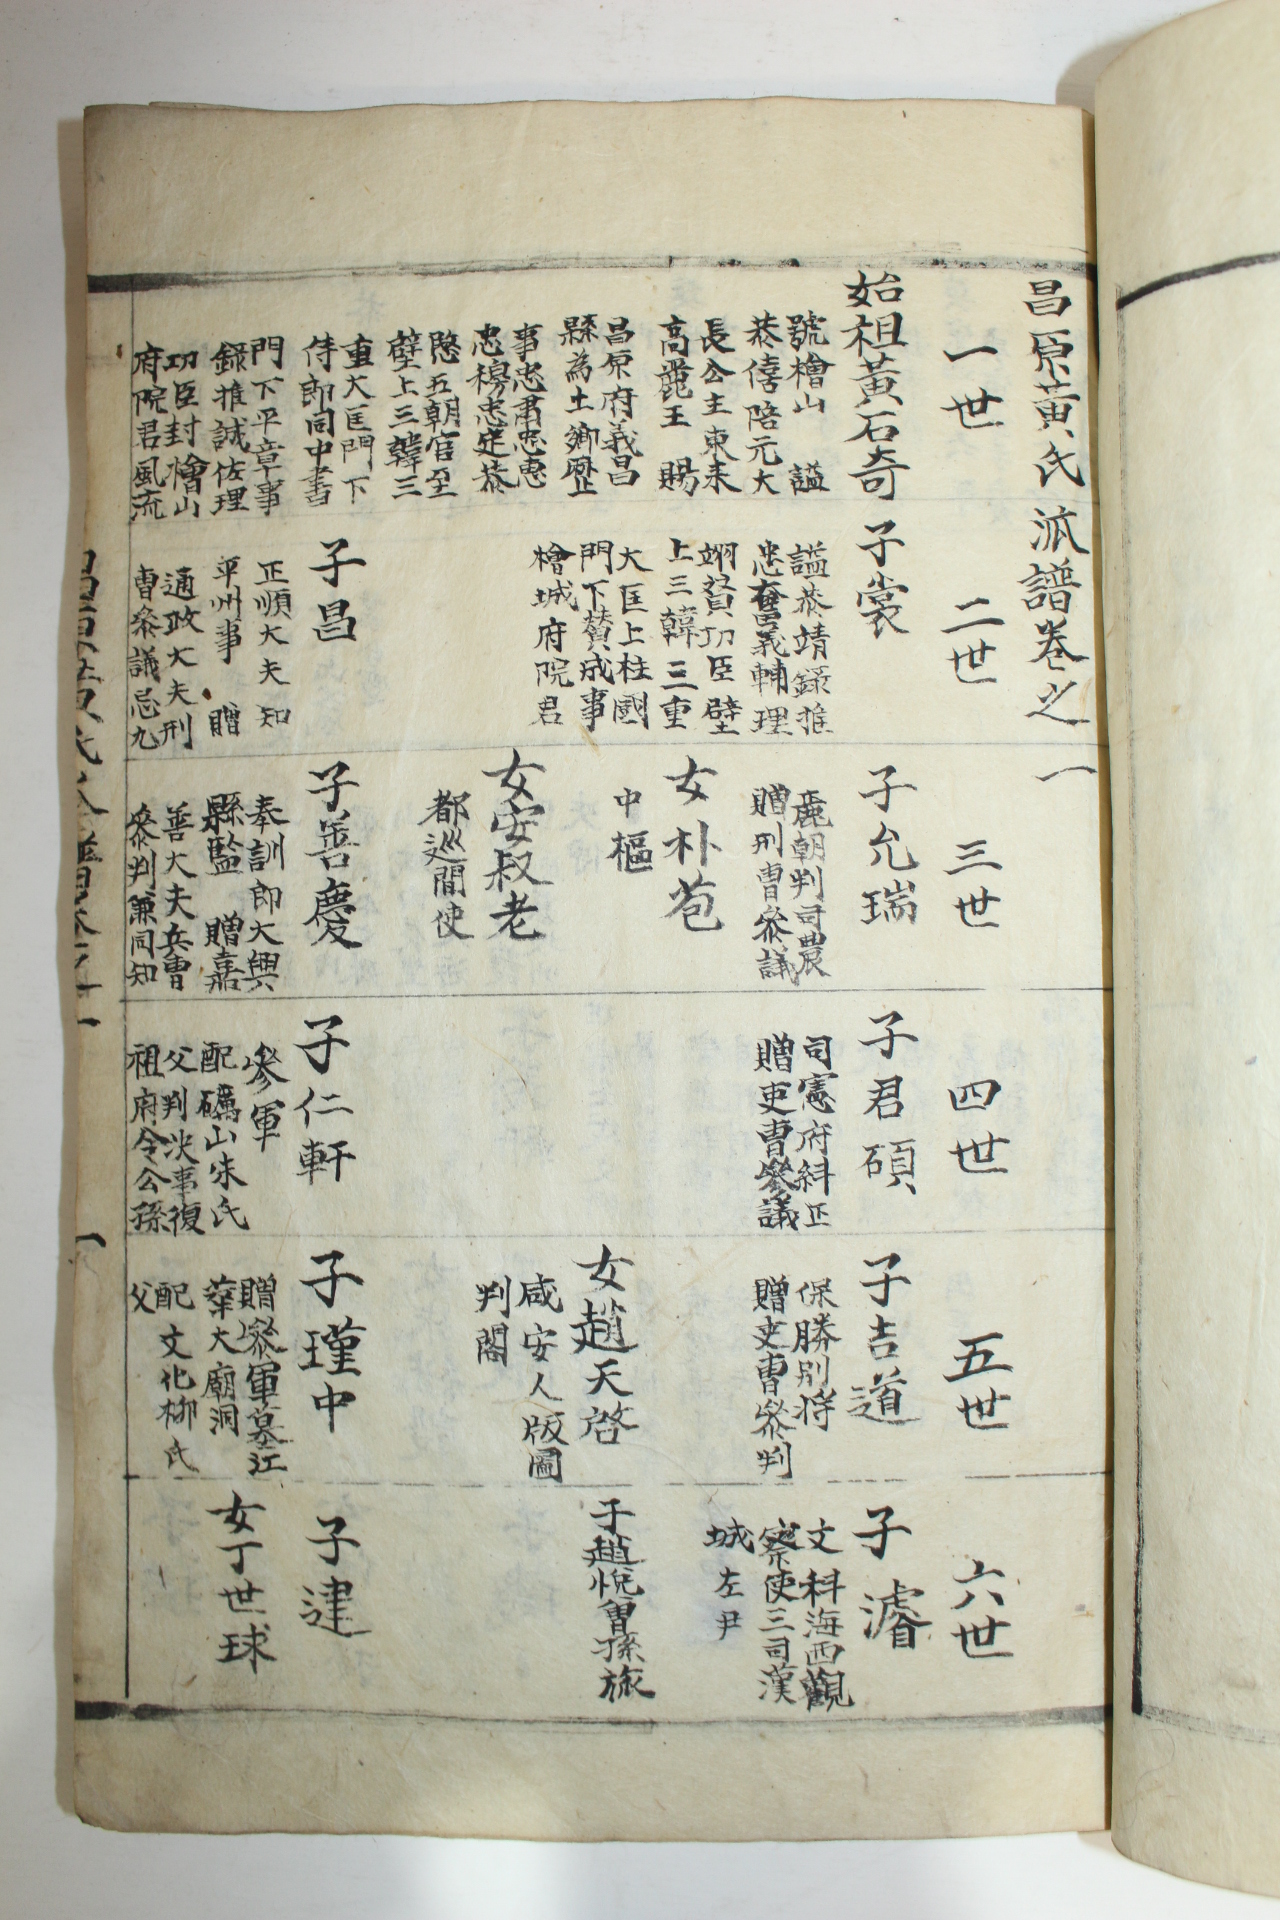 昌原黃氏派譜卷之一
一世
二世
三世
四世
五世
六世
始祖黃石奇
號檜山 謚
恭僖陪元大
長公主東來
高麗王 賜
昌原府義昌
縣為土鄉歷
事忠肅忠惠
忠穆忠定恭
愍五朝官至
壁上三韓三
重大匡門下
侍郎同中書
門下平章事
錄推誠佐理
功臣封檜山
府院君風流
子裳
謚恭靖錄推
忠奮義輔理
翊賛功臣壁
上三韓三重
大匡上柱國
門下贊成事
檜城府院君
子昌
正順大夫知
平州事 贈
通政大夫刑
曹叅議忌九
子允瑞
麗朝判司農
贈刑曹叅議
女朴苞
中樞
女安叔老
都巡問使
子善慶
奉訓郎大興
縣監 贈嘉
善大夫兵曹
叅判兼同知
子君碩
司憲府糾正
贈吏曹叅議
子仁軒
叅軍
配礪山宋氏
父判决事復
祖府令公孫
子吉道
保勝別将
贈吏曹叅判
女趙天啓
咸安人版圖
判閣
子瑾中
贈叅軍墓江
華大廟洞
配文化柳氏
父
子濬
文科海西觀
察使三司漢
城左尹
子趙悅曾孫旅
子建
女丁世球
昌原黃氏 一 一